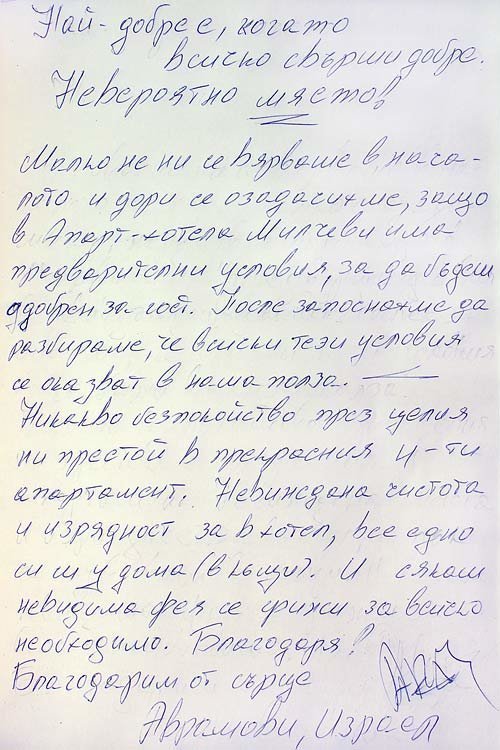 Най-добре е, когато
всичко свърши добре.
Невероятно място!
Малко не ни се вярваше в нача-
лото и дори се озадачихме, защо
в Апарт-хотела Милчеви има
предварителни условия, за да бъдеш
одобрен за гост. После започнахме да
разбираме, че всички тези условия
се оказват в наша полза.
Никакво безпокойство през целия
ни престой в прекрасния 4-ти
апартамент. Невиждана чистота
и изрядност за в хотел, все едно
си си у дома (в къщи). И сякаш
невидима фея се грижи за всичко
необходимо. Благодаря!
Благодарим от сърце
Аврамови, Израел